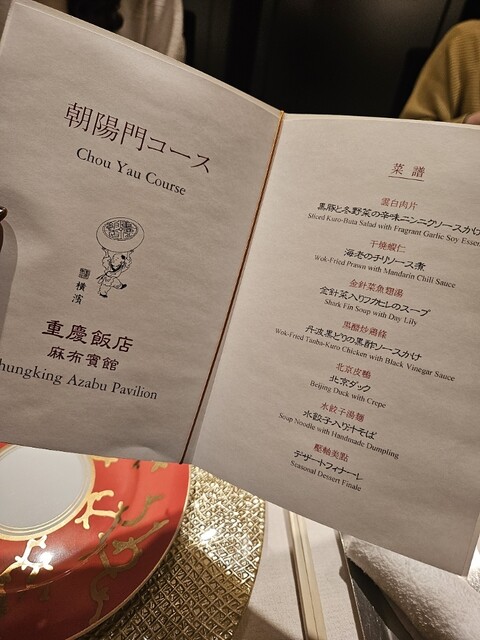 朝陽門コース
Chou Yau Course
横濱
重慶飯店
麻布賓館
hungking Azabu Pavilion
菜譜
雲白肉片
黒豚と冬野菜の辛味ニンニクソースかけ
Sliced Kuro-Buta Salad with Fragrant Garlic Soy Essen
干焼蝦仁
海老のチリソース煮
Wok-Fried Prawn with Mandarin Chili Sauce
金針菜魚翅湯
金針菜入りフカヒレのスープ
Shark Fin Soup with Day Lily
黒醋炒鶏條
丹波黒どりの黒酢ソースかけ
Wok-Fried Tanba-Kuro Chicken with Black Vinegar Sauce
北京皮鴨
北京ダック
Beijing Duck with Crepe
水餃子湯麺
水餃子入り汁そば
Soup Noodle with Handmade Dumpling
壓軸美點
デザートフィナーレ
Seasonal Dessert Finale